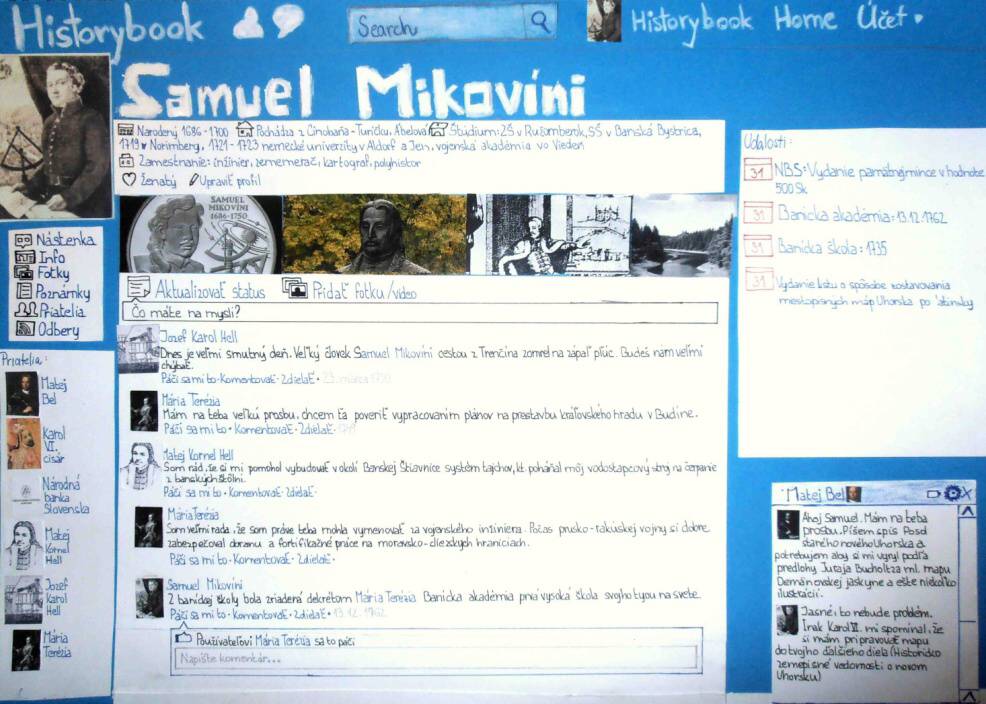 Historybook
Search
Historybook Home Účet
Samuel Mikovíni
Narodený 1686-1700 Pochádza z Cinobaňa-Turičky, Abelová Štúdium: ZŠ v Ružomberok, SŠ v Banská Bystrica,
1719 v Norimberg, 1721-1723 nemecké univerzity v Aldorf a Jen, vojenská akadémia vo Viedeň
Zamestnanie: inžinier, zememerač, kartograf, polyhistor
Ženatý Upraviť profil
SAMUEL
MIKOVÍNI
1686-1750
Nástenka
Info
Fotky
Poznámky
Priatelia
Odbery
Aktualizovať status Pridať fotku/video
Čo máte na mysli?
Priatelia:
Matej
Bel
Karol
VI.
cisár
Národná
banka
Slovenska
Matej
Kornel
Hell
Jozef
Karol
Hell
Mária
Terézia
Jozef Karol Hell
Dnes je veľmi smutný deň. Veľký človek Samuel Mikovíni cestou z Trenčína zomrel na zápal pľúc. Budeš nám veľmi
chýbať.
Páči sa mi to · Komentovať · Zdielať · 23. marca 1750
Mária Terézia
Mám na teba veľkú prosbu, chcem ťa poveriť vypracovaním plánov na prestavbu kráľovského hradu v Budíne.
Páči sa mi to · Komentovať · Zdielať ·
Matej Kornel Hell
Som rád, že si mi pomohol vybudovať v okolí Banskej Štiavnice systém tajchov, kt. poháňal môj vodostĺpcový stroj na čerpanie
z banských štôlní.
Páči sa mi to · Komentovať · Zdielať ·
Mária Terézia
Som veľmi rada, že som práve teba mohla vymenovať za vojenského inžiniera. Počas prusko-rakúskej vojny si dobre
zabezpečoval obranu a fortifikačné práce na moravsko-sliezskych hraniciach.
Páči sa mi to · Komentovať · Zdielať ·
Samuel Mikovíni
Z banskej školy bola zriadená dekrétom Mária Terézia Banícka akadémia prvá vysoká škola svojho typu na svete.
Páči sa mi to · Komentovať · Zdielať · 13.12.1762
Používateľovi Mária Terézia sa to páči
Napíšte komentár...
Udalosti:
31 NBS: Vydanie pamätnej mince v hodnote
500 Sk
31 Banícka akadémia: 13.12.1762
31 Banícka škola: 1735
31 Vydanie listu o spôsobe zostavovania
miestopisných máp Uhorska po latinsky
Matej Bel X
Ahoj Samuel. Mám na teba
prosbu. Píšem spis Posol
starého nového Uhorska a
potrebujem aby si mi vyryl podľa
predlohy Juraja Bucholtza ml. mapu
Demänovskej jaskyne a ešte niekoľko
ilustrácií.
Jasné, to nebude problém.
Inak Karol VI. mi spomínal, že
si mám pripravovať mapu
do tvojho ďalšieho diela (Historicko
zemepisné vedomosti o novom
Uhorsku)